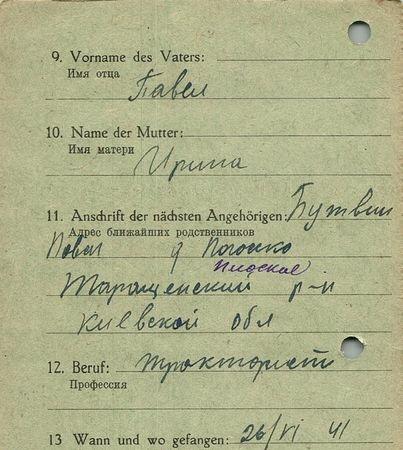 9. Vorname des Vaters:
Имя отца
Павел
10. Name der Mutter:
Имя матери
Ирина
11. Anschrift der nächsten Angehörigen: Бутвин
Адрес ближайших родственников
Павел д
Плоское
Таращенский р-н
Киевской обл
12. Beruf: тракторист
Профессия
13 Wann und wo gefangen: 26/VI 41